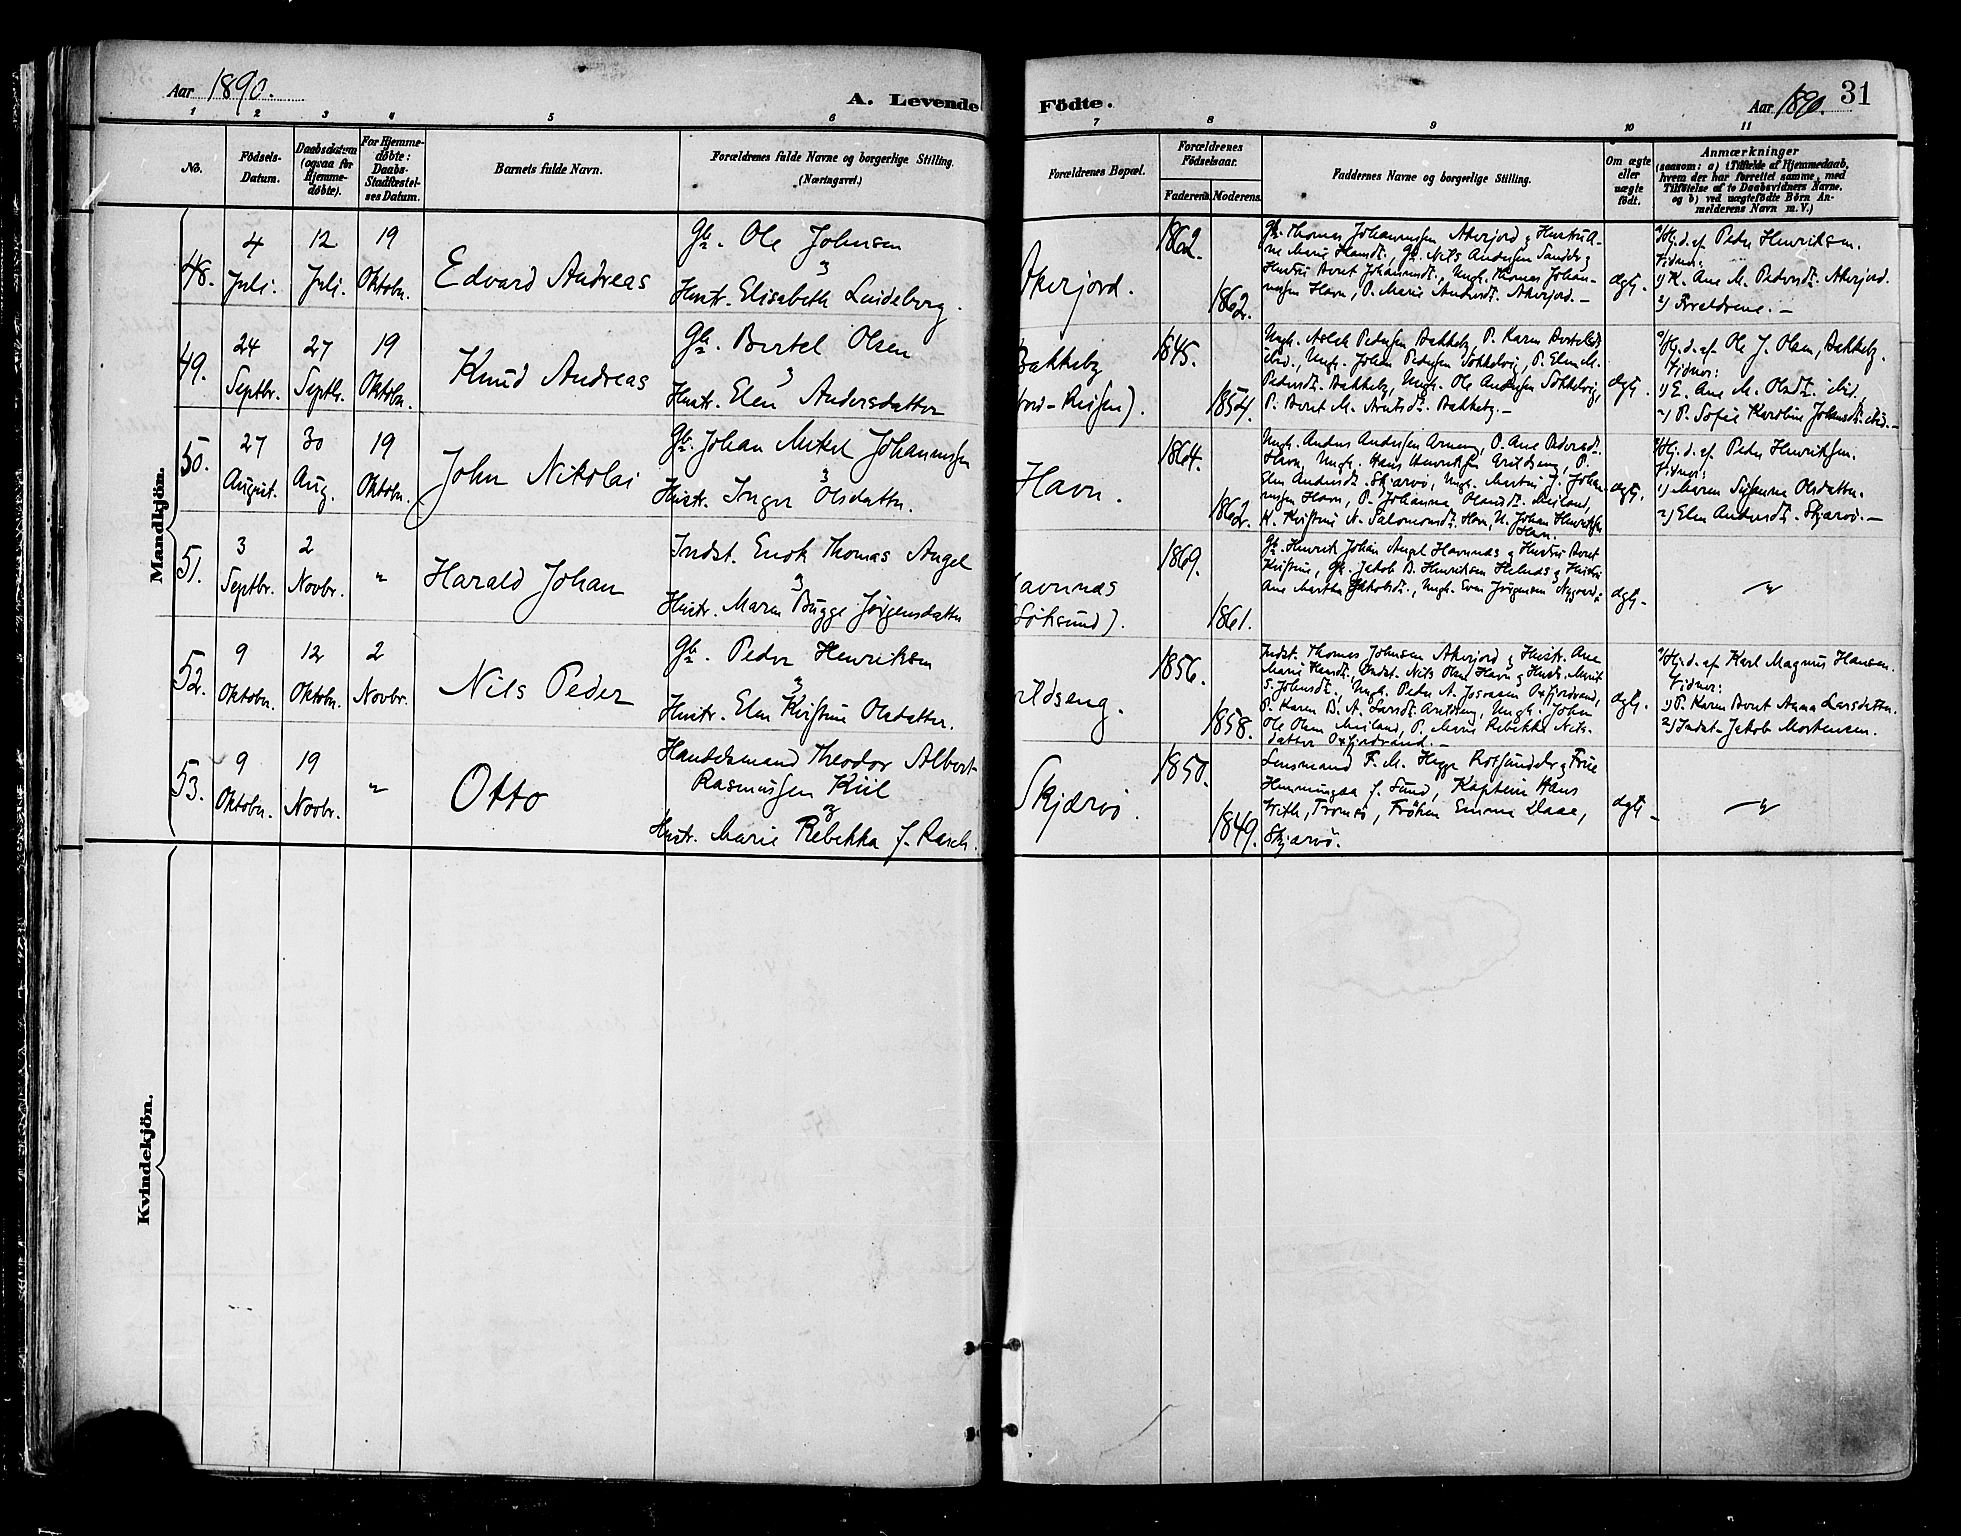 Aar 1890.
A. Levende Födte.
Aar 1890.
31
1 2 3 4 5 6 7 8 9 10 11
No.
Födsels-
Datum.
Daabsdatum
(ogsaa for
Hjemme-
döbte).
For Hjemme-
döbte:
Daabs-
Stadfæstel-
ses Datum.
Barnets fulde Navn.
Forældrenes fulde Navne og borgerlige Stilling.
(Næringsvei.)
Forældrenes Bopæl.
Forældrenes
Födselsaar.
Faderens.
Moderens.
Faddernes Navne og borgerlige Stilling.
Om ægte
eller
uægte
födt.
Anmærkninger
(saasom: a) i Tilfælde af Hjemmedaab,
hvem der har forrettet samme, med
Tilföielse af to Daabsvidners Navne,
og b) ved uægtefödte Börn An-
melderens Navn m. V.)
Mandkjön.
48.
4
Juli.
12
Juli.
19
Oktobr.
Edvard Andreas
Gbr. Ole Johnsen
og
Hustr. Elisabeth Lindeborg.
Akerjord.
1862.
1862.
Gbr. Thomas Johannessen Akerjord og Hustru A-
ne Marie Hansdt., Gbr. Nils Andersen Sandb. og
Hustru Beret Johannesdt., Ungk. Thomas Johan-
nesen Havn, P. Marie Andersdt. Akerjord. —
ægte.
a/ Hj.d. af Peder Henriksen.
Vidner:
1) K. Ane M. Pedersdt. Akerjord.
2) Forældrene. —
49.
24
Septbr.
27
Septbr.
19
Oktobr.
Knud Andreas
Gbr. Bertel Olsen
og
Hustr. Elen Andersdatter
Bakkeby
(Nord-Reisen).
1845.
1854.
Ungk. Aslak Pedersen Bakkeby, P. Karen Bertelsdt.
ibid., Ungk. Johan Pedersen Sokkelvig, P. Elen M.
Pedersdt. Bakkeby, Ungk. Ole Andersen Sokkelvig,
P. Beret M. Arntsdt. Bakkeby. —
ægte.
a/ Hj.d. af Ole J. Olsen, Bakkeby.
Vidner:
1) E. Ane M. Olsdt. ibid.
2) P. Sofie Karoline Johnsdt. ibid. —
50.
27
August.
30
Aug.
19
Oktobr.
John Nikolai
Gbr. Johan Mikel Johannessen
og
Hustr. Inger Olsdatter.
Havn.
1864.
1862.
Havn, Ungk. Hans Henriksen Arildseng, P.
Elen Andersdt. Skjærvö, Ungk. Martin J. Johan-
nessen Havn, P. Johanna Olausdt. Meiland,
K. Kristine N. Salomonsdt. Havn, U. Johan Henriksen
Havn.
ægte.
a/ Hj.d. af Peder Henriksen.
Vidner:
1) Maren Susanna Olsdatter.
2) Elen Andersdt. Skjærvö. —
51.
3
Septbr.
2
Novbr.
"
Harald Johan
Indst. Enok Thomas Angel
og
Hustr. Maren Bugge Jörgensdatter
Havnnæs
(Göksund).
1869.
1861.
Gbr. Henrik Johan Angel Havnnæs og Hustru Beret
Kristine, Gbr. Jakob B. Henriksen Helnæs og Hustru
Ane Martha Jakobsdt., Ungk. Even Jörgensen Nygaard.
ægte.
"
52.
9
Oktobr.
12
Oktobr.
2
Novbr.
Nils Peder
Gbr. Peder Henriksen
og
Hustr. Elen Kristine Olsdatter.
Arildseng.
1856.
1858.
Indst. Thomas Johnsen Akerjord og Hustr. Ane
Marie Hansdt., Indst. Nils Olsen Havn og Hustr. Marit
S. Johnsdt., Ungk. Peder A. Josvasen Oxfjordvand,
P. Karen B. A. Larsdt. Arildseng, Ungk. Johan
Ole Olsen Meiland, P. Marie Rebekka Nils-
datter Oxfjordvand. —
ægte.
a/ Hj.d. af Karl Magnus Hansen.
Vidner:
1) P. Karen Beret Anna Larsdatter.
2) Indst. Jakob Mortensen.
53.
9
Oktobr.
19
Novbr.
"
Otto
Handelsmand Theodor Albert
Rasmussen Kiil
og
Hustr. Marie Rebekka f. Rasch.
Skjærvö.
1850.
1849.
Lensmand F. M. Hegge Rotsundelv og Frue
Henningaa f. Sund, Kaptein Hans
With, Tromsö, Fröken Emma Daae,
Skjærvö.
ægte.
"
Kvindekjön.